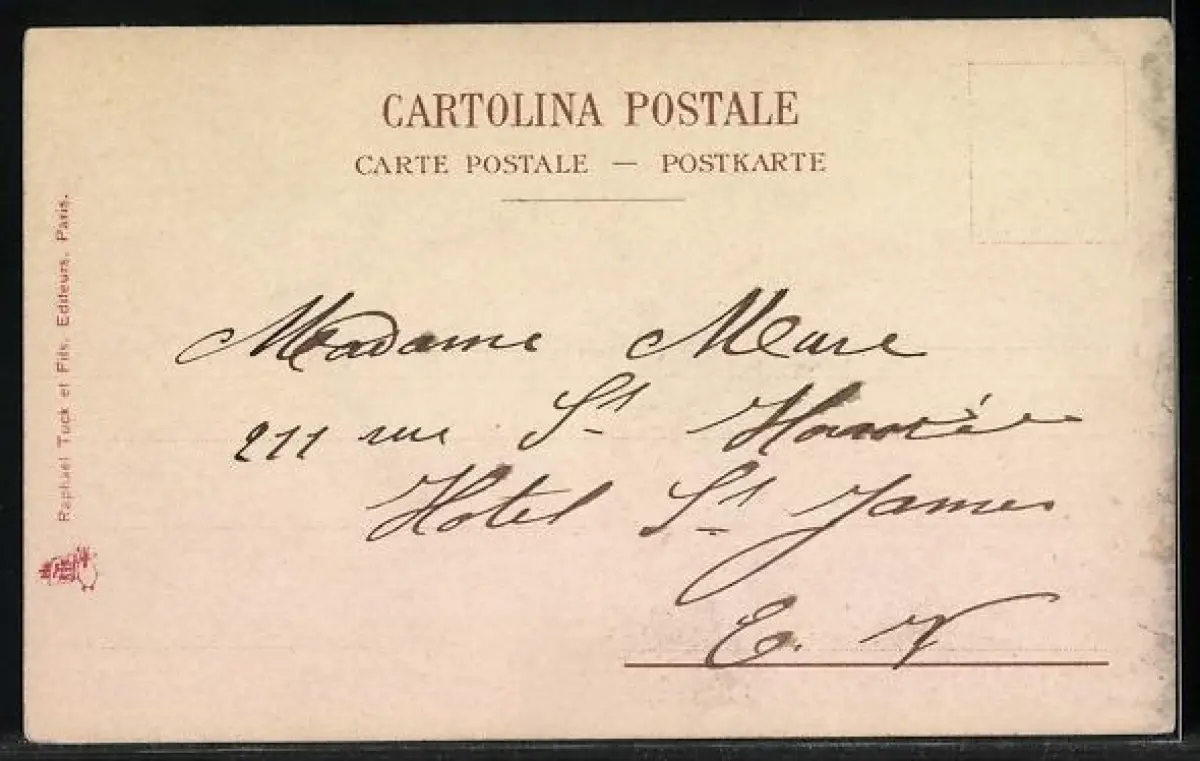 CARTOLINA POSTALE
CARTE POSTALE — POSTKARTE
Madame Mure
211 rue St Honoré
Hotel St James
E. V
Raphael Tuck et Fils. Editeurs. Paris.